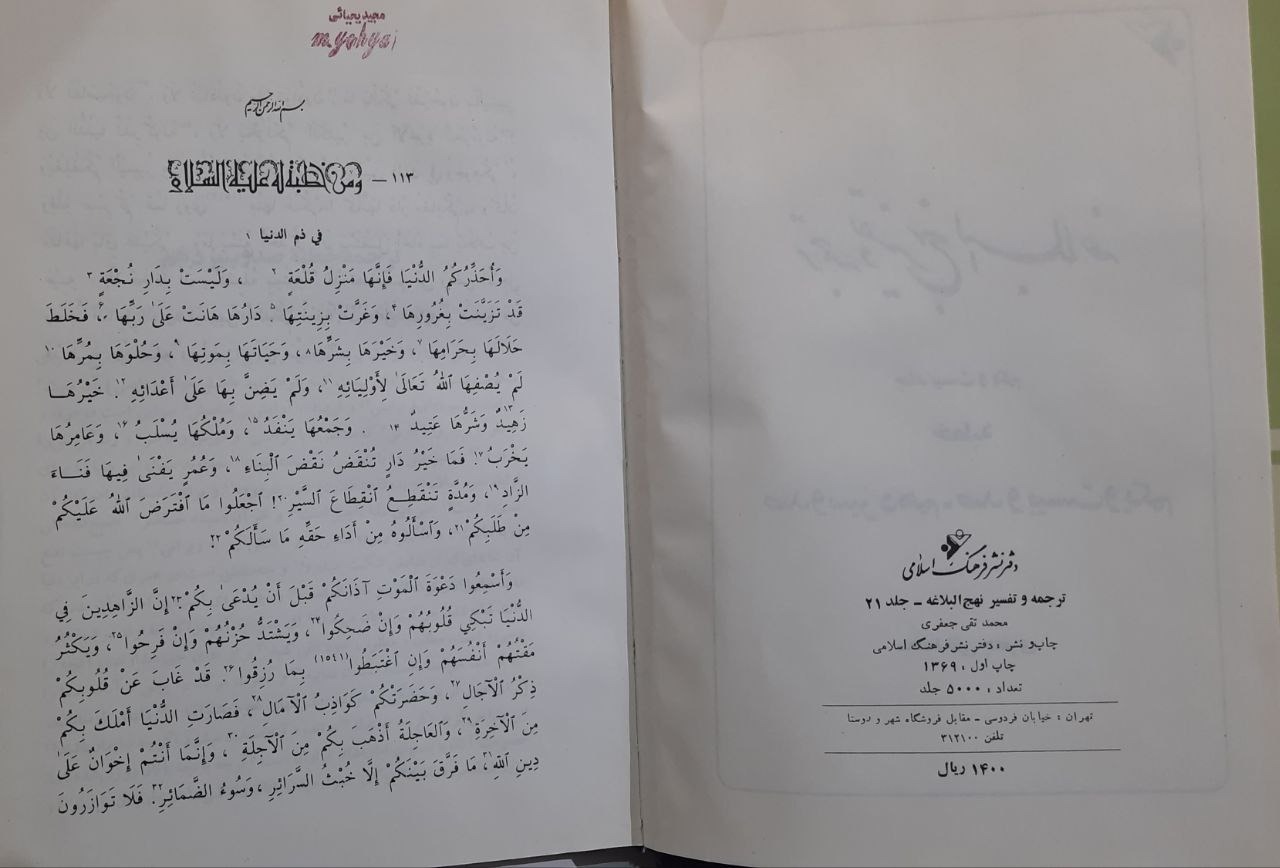 مجید یحیائی
m.yahyai
بسم الله الرحمن الرحیم
۱۱۳ – ومن خطبة له علیه السلام
في ذم الدنيا ۱
وَأُحَذِّرُكُمُ الدُّنْيَا فَإِنَّهَا مَنْزِلُ قُلْعَةٍ ۲ ، وَلَيْسَتْ بِدَارِ نُجْعَةٍ ۳
قَدْ تَزَيَّنَتْ بِغُرُورِهَا ۴، وَغَرَّتْ بِزِينَتِهَا ۵. دَارُهَا هَانَتْ عَلَىٰ رَبِّهَا ۶، فَخَلَطَ
حَلَالَهَا بِحَرَامِهَا ۷، وَخَيْرَهَا بِشَرِّهَا ۸، وَحَيَاتَهَا بِمَوتِهَا ۹، وَحُلْوَهَا بِمُرِّهَا ۱۰
لَمْ يُصْفِهَا اللّٰهُ تَعَالَىٰ لِأَوْلِيَائِهِ ۱۱، وَلَمْ يَضِنَّ بِهَا عَلَىٰ أَعْدَائِهِ ۱۲. خَيْرُهَــا
زَهِيدٌ ۱۳ وَشَرُّهَا عَتِيدٌ ۱۴ . وَجَمْعُهَا يَنْفَدُ ۱۵، وَمُلْكُهَا يُسْلَبُ ۱۶، وَعَامِرُهَا
يَخْرَبُ ۱۷. فَمَا خَيْرُ دَارٍ تُنْقَضُ نَقْضَ ٱلْبِنَاءِ ۱۸، وَعُمُرٍ يَفْنَىٰ فِيهَا فَنَــاءَ
الزَّادِ ۱۹، وَمُدَّةٍ تَنْقَطِعُ ٱنْقِطَاعَ السَّيْرِ ۲۰! اجْعَلُوا مَا افْتَرَضَ اللّٰهُ عَلَيْكُمْ
مِنْ طَلَبِكُمْ ۲۱، وَٱسْأَلُوهُ مِنْ أَدَاءِ حَقِّهِ مَا سَأَلَكُمْ ۲۲.
وَأَسْمِعُوا دَعْوَةَ ٱلْمَوْتِ آذَانَكُمْ قَبْلَ أَنْ يُدْعَىٰ بِكُمْ ۲۳. إِنَّ الزَّاهِدِينَ فِي
الدُّنْيَا تَبْكِي قُلُوبُهُمْ وَإِنْ ضَحِكُوا ۲۴، وَيَشْتَدُّ حُزْنُهُمْ وَإِنْ فَرِحُوا ۲۵، وَيَكْثُرُ
مَقْتُهُمْ أَنْفُسَهُمْ وَإِنِ اغْتَبَطُوا (۱۵۴۱) بِمَا رُزِقُوا ۲۶. قَدْ غَابَ عَنْ قُلُوبِكُمْ
ذِكْرُ ٱلْآجَالِ ۲۷، وَحَضَرَتْكُمْ كَوَاذِبُ ٱلْآمَالِ ۲۸، فَصَارَتِ الدُّنْيَا أَمْلَكَ بِكُمْ
مِنَ ٱلْآخِرَةِ ۲۹، وَٱلْعَاجِلَةُ أَذْهَبَ بِكُمْ مِنَ ٱلْآجِلَةِ ۳۰، وَإِنَّمَا أَنْتُمْ إِخْوَانٌ عَلَىٰ
دِينِ ٱللّٰهِ ۳۱، مَا فَرَّقَ بَيْنَكُمْ إِلَّا خُبْثُ السَّرَائِرِ، وَسُوءُ الضَّمَائِرِ ۳۲. فَلَا تَوَازَرُونَ
دفتر نشر فرهنگ اسلامی
ترجمه و تفسیر نهج‌البلاغه – جلد ۲۱
محمد تقی جعفری
چاپ و نشر : دفتر نشر فرهنگ اسلامی
چاپ اول : ۱۳۶۹
تعداد : ۵۰۰۰ جلد
تهران : خیابان فردوسی – مقابل فروشگاه شهر و روستا
تلفن ۳۱۲۱۰۰
۱۴۰۰ ریال